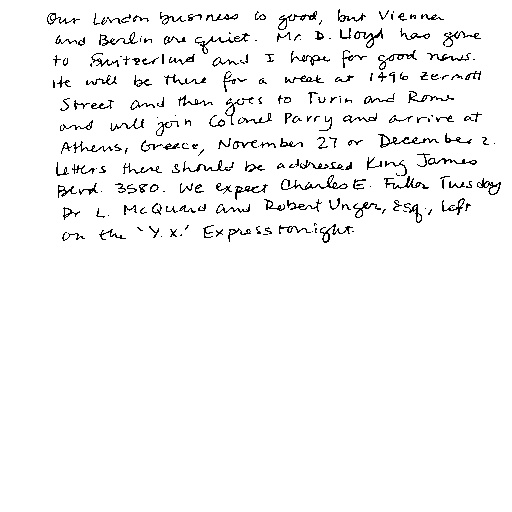 Our London business is good, but Vienna
and Berlin are quiet. Mr. D. Lloyd has gone
to Switzerland and I hope for good news.
He will be there for a week at 1496 Zermott
Street and then goes to Turin and Rome
and will join Colonel Parry and arrive at
Athens, Greece, November 27 or December 2.
Letters there should be addressed King James
Blvd. 3580. We expect Charles E. Fuller Tuesday
Dr L. McQuard and Robert Unger, Esq., left
on the 'Y.X.' Express tonight.